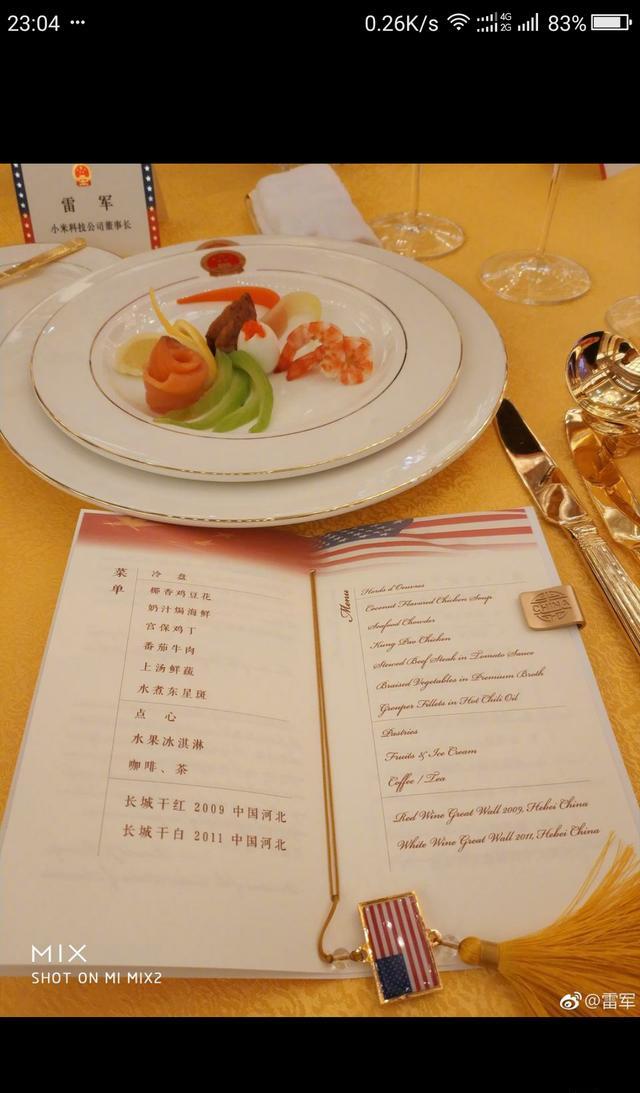 23:04 ···
0.26K/s 4G 2G 83%
雷军
小米科技公司董事长
菜单
冷盘
椰香鸡豆花
奶汁焗海鲜
宫保鸡丁
番茄牛肉
上汤鲜蔬
水煮东星斑
点心
水果冰淇淋
咖啡、茶
长城干红 2009 中国河北
长城干白 2011 中国河北
Menu
Hords d'Oeuvres
Coconut Flavored Chicken Soup
Seafood Chowder
Kung Pao Chicken
Stewed Beef Steak in Tomato Sauce
Braised Vegetables in Premium Broth
Grouper Fillets in Hot Chili Oil
Pastries
Fruits & Ice Cream
Coffee / Tea
Red Wine Great Wall 2009, Hebei China
White Wine Great Wall 2011, Hebei China
CHINA
MIX
SHOT ON MI MIX2
@雷军